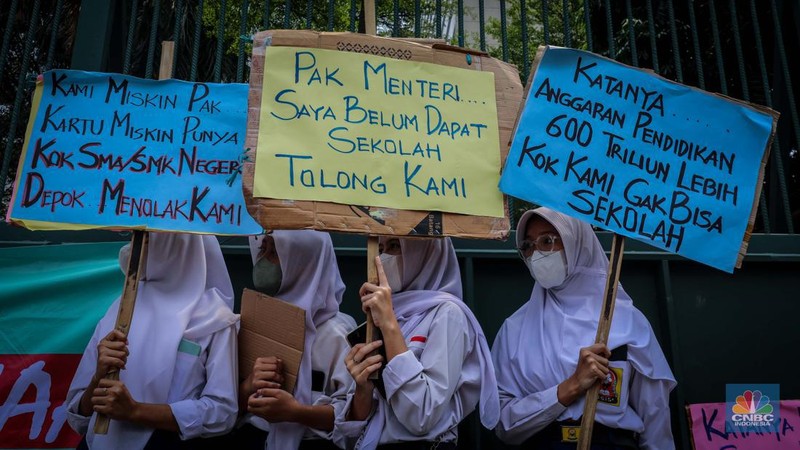 Kami Miskin Pak...
Kartu Miskin Punya
Kok SMA/SMK Neger
Depok Menolak Kami
Pak Menteri....
Saya Belum Dapat
Sekolah
Tolong Kami
Katanya.......
Anggaran Pendidikan
600 Triliun Lebih
Kok Kami Gak Bisa
Sekolah
CNBC
INDONESIA